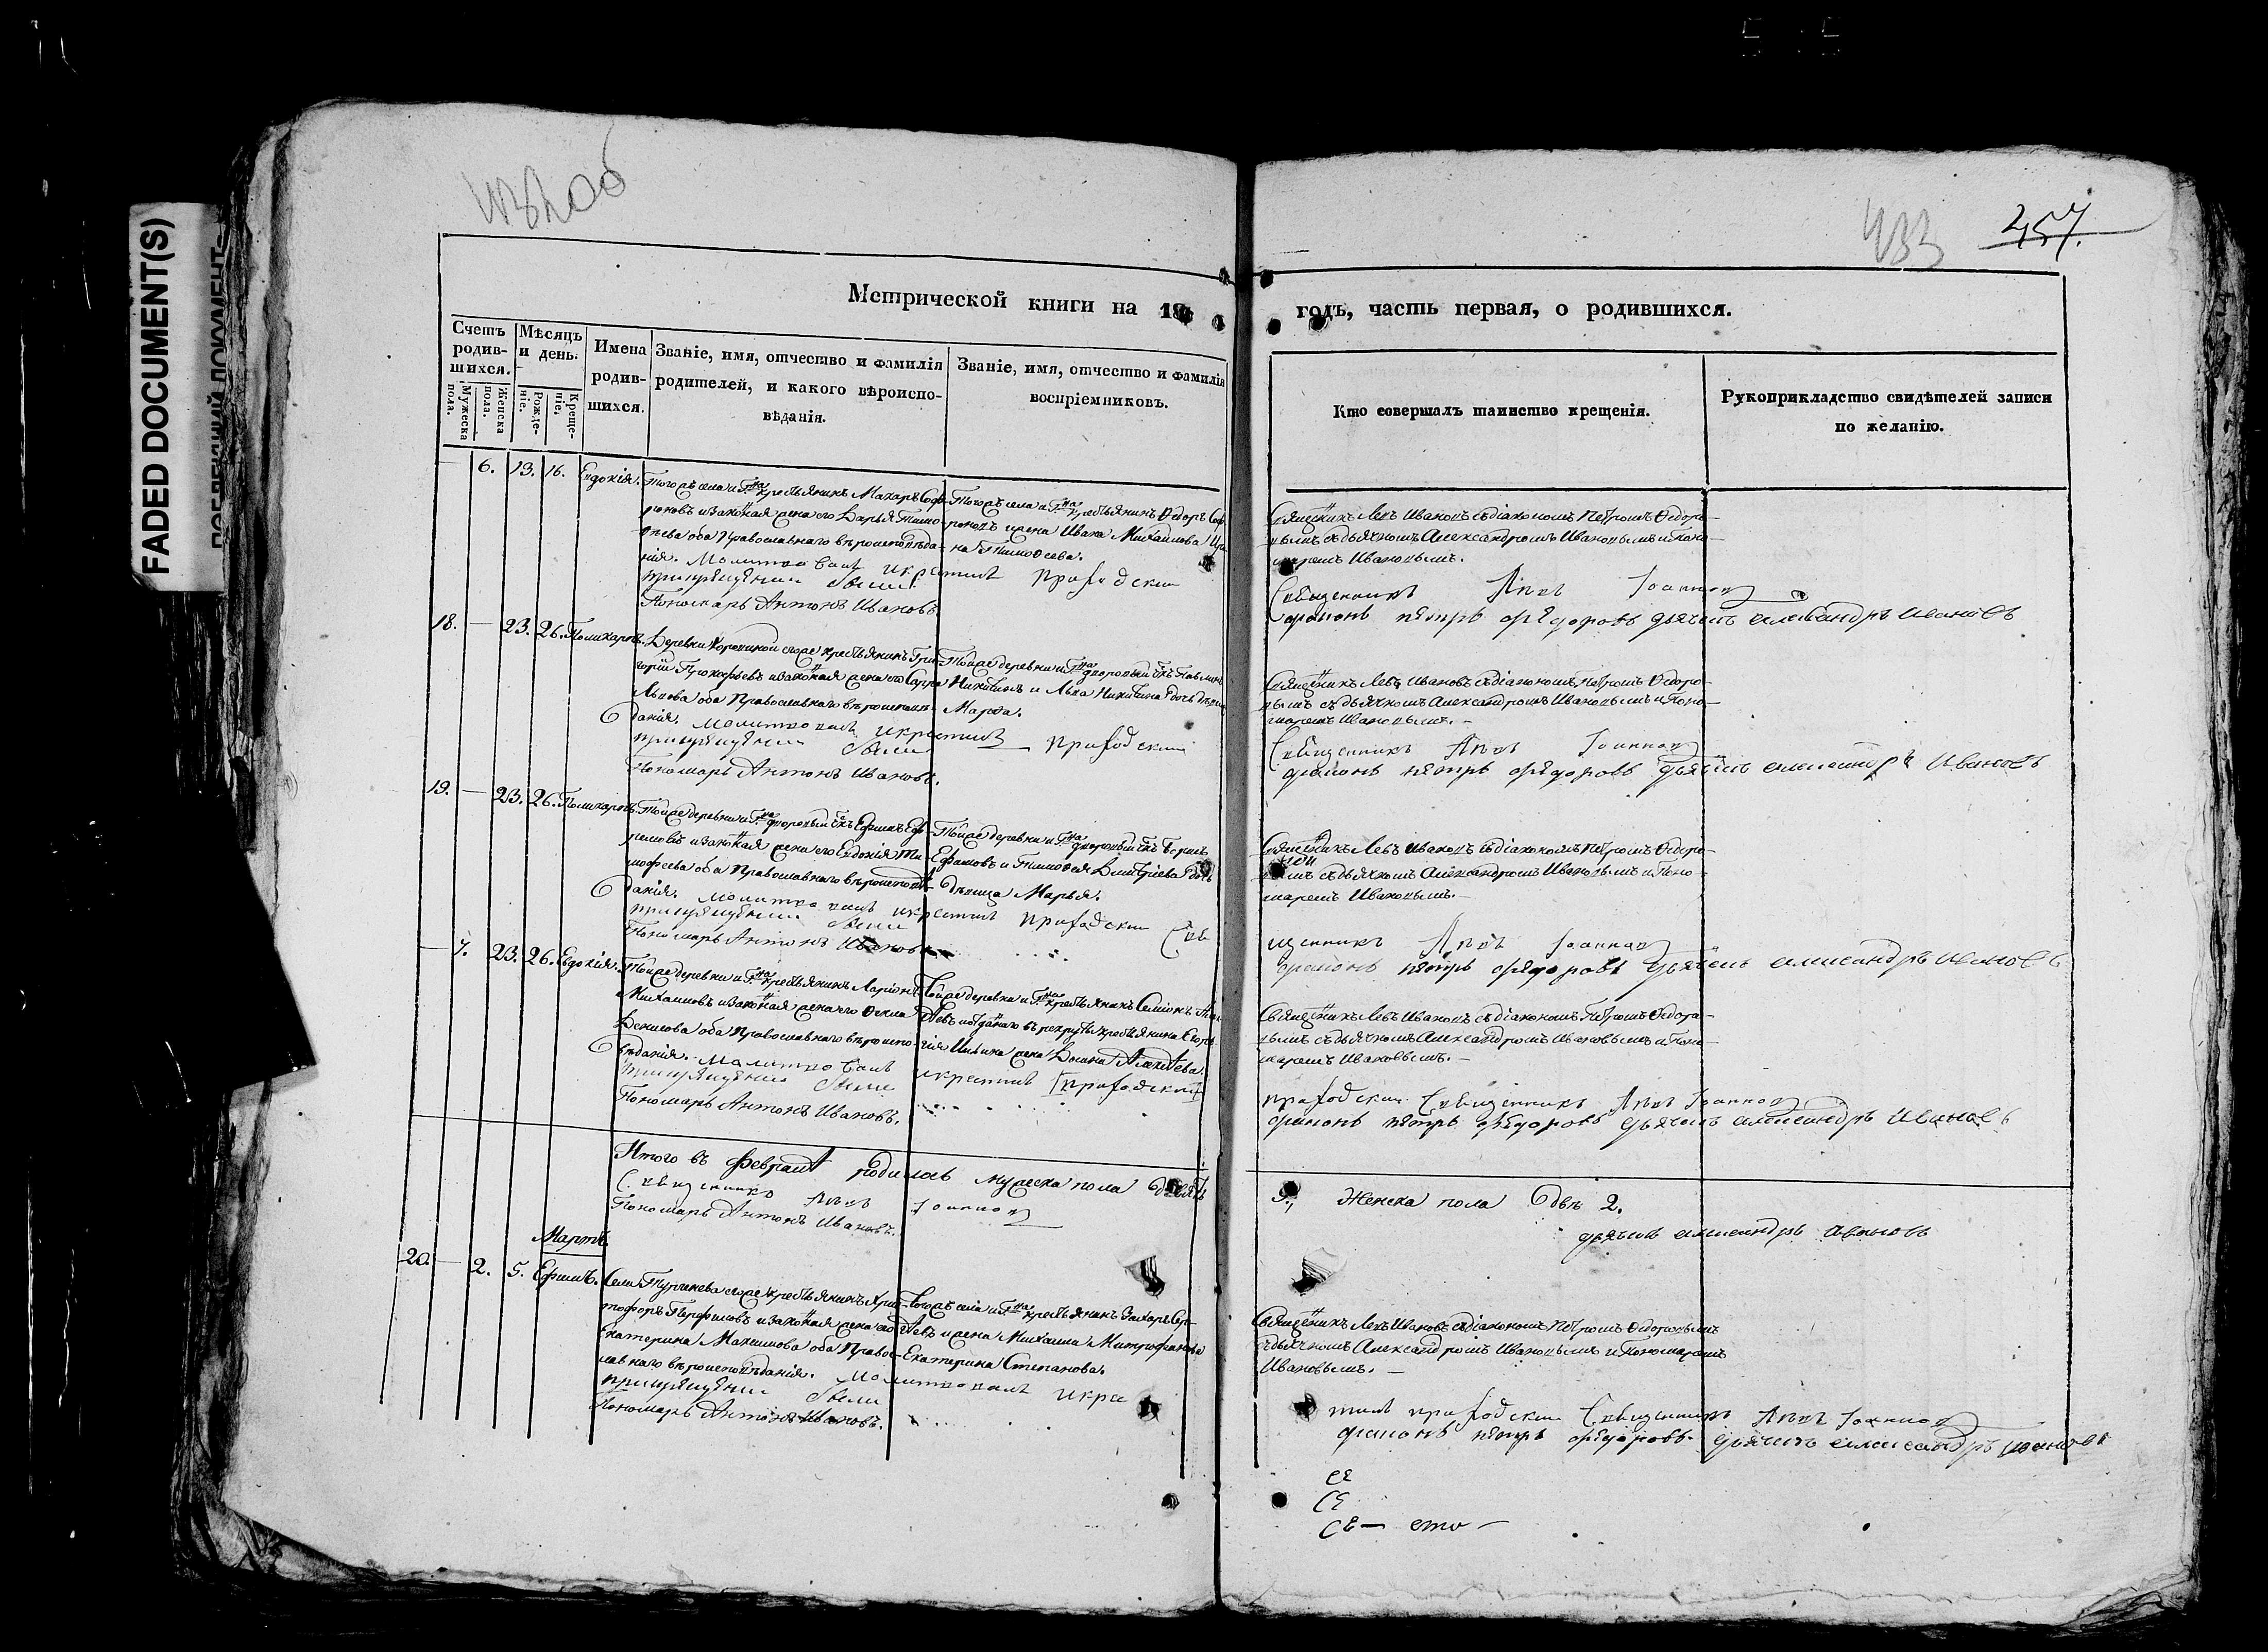 FADED DOCUMENT(S)
432 об
433 457.
Метрической книги на 18 годъ, часть первая, о родившихся.
Счетъ родив-шихся.
Мужеска пола.
Женска пола.
Мѣсяцъ и день.
Рожде-ніе.
Креще-ніе.
Имена родив-шихся.
Званіе, имя, отчество и фамилія
родителей, и какого вѣроиспо-
вѣданія.
Званіе, имя, отчество и фамилія
воспріемниковъ.
Кто совершалъ таинство крещенія.
Рукоприкладство свидѣтелей записи
по желанію.
— 6. 13. 16. Евдокія. Тогожъ села и Г:на крестьянинъ Макаръ Соф-
роновъ и законная жена его Дарья Тимо-
ѳѣева оба Православнаго вѣроисповѣда-
нія. Молитвовалъ и крестилъ приходскии
при крещении были
Пономарь Антонъ Ивановъ
Тогожъ села и Г:на крестьянинъ Ѳедоръ Соф-
роновъ и жена Ивана Михайлова Ири-
на Тимоѳеева.
Священникъ Левъ Ивановъ съ діакономъ Петромъ Ѳедоро-
вымъ съ дьячкомъ Александромъ Ивановымъ и Поно-
маремъ Ивановымъ.
Священникъ Левъ Іоанновъ
диаконъ петръ ѳедоровъ дьячекъ александръ ивановъ
18. — 23. 26. Поликарпъ. Деревни сгоже крестьянинъ Гри-
горій Прокофьевъ и законная жена его Сарра
Львова оба Православнаго вѣроисповѣ-
данія. Молитвовалъ и крестилъ приходскии
при крещении были
Пономарь Антонъ Ивановъ.
Тойже деревни и Г:на дворовый
Никитинъ и Льва Никитина дочь дѣвица
Марѳа.
Священникъ Левъ Ивановъ съ діакономъ Петромъ Ѳедоро-
вымъ съ дьячкомъ Александромъ Ивановымъ и Поно-
маремъ Ивановымъ. —
Священникъ Левъ Іоанновъ
диаконъ петръ ѳедоровъ дьячекъ александръ ивановъ
19. — 23. 26. Поликарпъ. Тойже деревни и Г:на дворовый Ефимъ Еф-
ремовъ и законная жена его Евдокія Ти-
моѳеева оба Православнаго вѣроисповѣ-
данія. Молитвовалъ и крестилъ приходскии Свя
при крещении были
Пономарь Антонъ Ивановъ
Тойже деревни и Г:на дворовый
Ефимовъ и Тимоѳея Дмитріева дочь
дѣвица Марья.
Священникъ Левъ Ивановъ съ діакономъ Петромъ Ѳедоро-
вымъ съ дьячкомъ Александромъ Ивановымъ и Поно-
маремъ Ивановымъ. —
щенникъ Левъ Іоанновъ
диаконъ петръ ѳедоровъ дьячекъ александръ ивановъ
— 7. 23. 26. Евдокія. Тойже деревни и Г:на крестьянинъ Ларіонъ
Михайловъ и законная жена его Ѳекла
Денисова оба Православнаго вѣроиспо-
вѣданія. Молитвовалъ и крестилъ приходскии
при крещении были
Пономарь Антонъ Ивановъ.
Тойже деревни и Г:на крестьянинъ Семіонъ
и отданнаго въ рекруты крестьянина Егор-
гія Ильина жена Домна Алексѣева.
Священникъ Левъ Ивановъ съ діакономъ Петромъ Ѳедоро-
вымъ съ дьячкомъ Александромъ Ивановымъ и Поно-
маремъ Ивановымъ. —
приходскии Священникъ Левъ Іоанновъ
диаконъ петръ ѳедоровъ дьячекъ александръ ивановъ
Итого въ Февралѣ родилось мужеска пола девять 9., Женска пола двѣ 2.
Священникъ Левъ Іоанновъ
Пономарь Антонъ Ивановъ.
дьячекъ александръ ивановъ
Мартъ.
20. — 2. 5. Ефимъ. Села Турчинова сгоже крестьянинъ Хрис-
тофоръ Перфиловъ и законная жена его
Екатерина Максимова оба Правос-
лавнаго вѣроисповѣданія. Молитвовалъ и крес
при крещении были
Пономарь Антонъ Ивановъ.
Тогожъ села и Г:на крестьянинъ Захаръ Сер-
гѣевъ и жена Михаила Митрофанова
Екатерина Степанова.
Священникъ Левъ Ивановъ съ діакономъ Петромъ Ѳедоровымъ
съ дьячкомъ Александромъ Ивановымъ и Пономаремъ
Ивановымъ. —
тилъ приходскии Священникъ Левъ Іоанновъ
диаконъ петръ ѳедоровъ дьячекъ александръ ивановъ
се
се
се — сто —